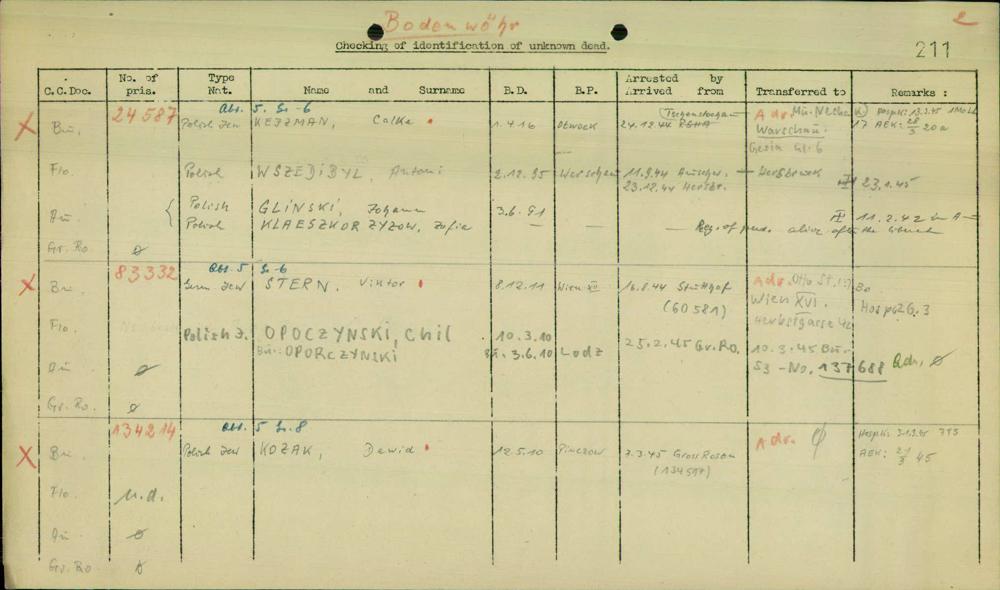 Bodenwöhr
2
Checking of identification of unknown dead.
211
C.C.Doc. No. of pris. Type Nat. Name and Surname B.D. B.P. Arrested by Arrived from Transferred to Remarks :
24587 Abt. 5. Gr-6
X Bu. Polish Jew KEJZMAN, Calka 1.4.16 Otwock 24.12.44 Adr. Hosp.K: 13.3.45
Warschau: 17 AEK: 28/3 20a
Gesia Gl. 6
Flo. Polish WSZEDIBYL, Antoni 2.12.95 Warschau 11.9.44 Auschw. Hersbruck
23.12.44 Hersbr. III 23.1.45
Au. Polish GLINSKI, Johann 3.6.91 III 11.2.42 in A—
Polish KLAESZKORZYZOW, Zofia — — — alive after the
Gr. Ro. ø
83332 Abt. 5 Gr-6
X Bu. Germ Jew STERN, Viktor 8.12.11 Wien 16.8.44 Stutthof Adr. Otto St.
(60581) Wien XVI. Hosp. 2G.3
Herbstgasse 42
Flo. Polish J. OPOCZYNSKI, Chil 10.3.10
Bu.: OPORCZYNSKI 3.6.10 Lodz 25.2.45 Gr. Ro. 10.3.45 Bu.-
Au. ø 53 - No. 137688 Adr. ø
Gr. Ro. ø
134214 Abt. 5 Gr. 8
X Bu. Polish Jew KOZAK, Dawid 12.5.10 Pinczow 7.3.45 Gross Rosen Adr. ø Hosp.K:
(134517) AEK: 21/3 45
Flo. n.d.
Au. ø
Gr. Ro.